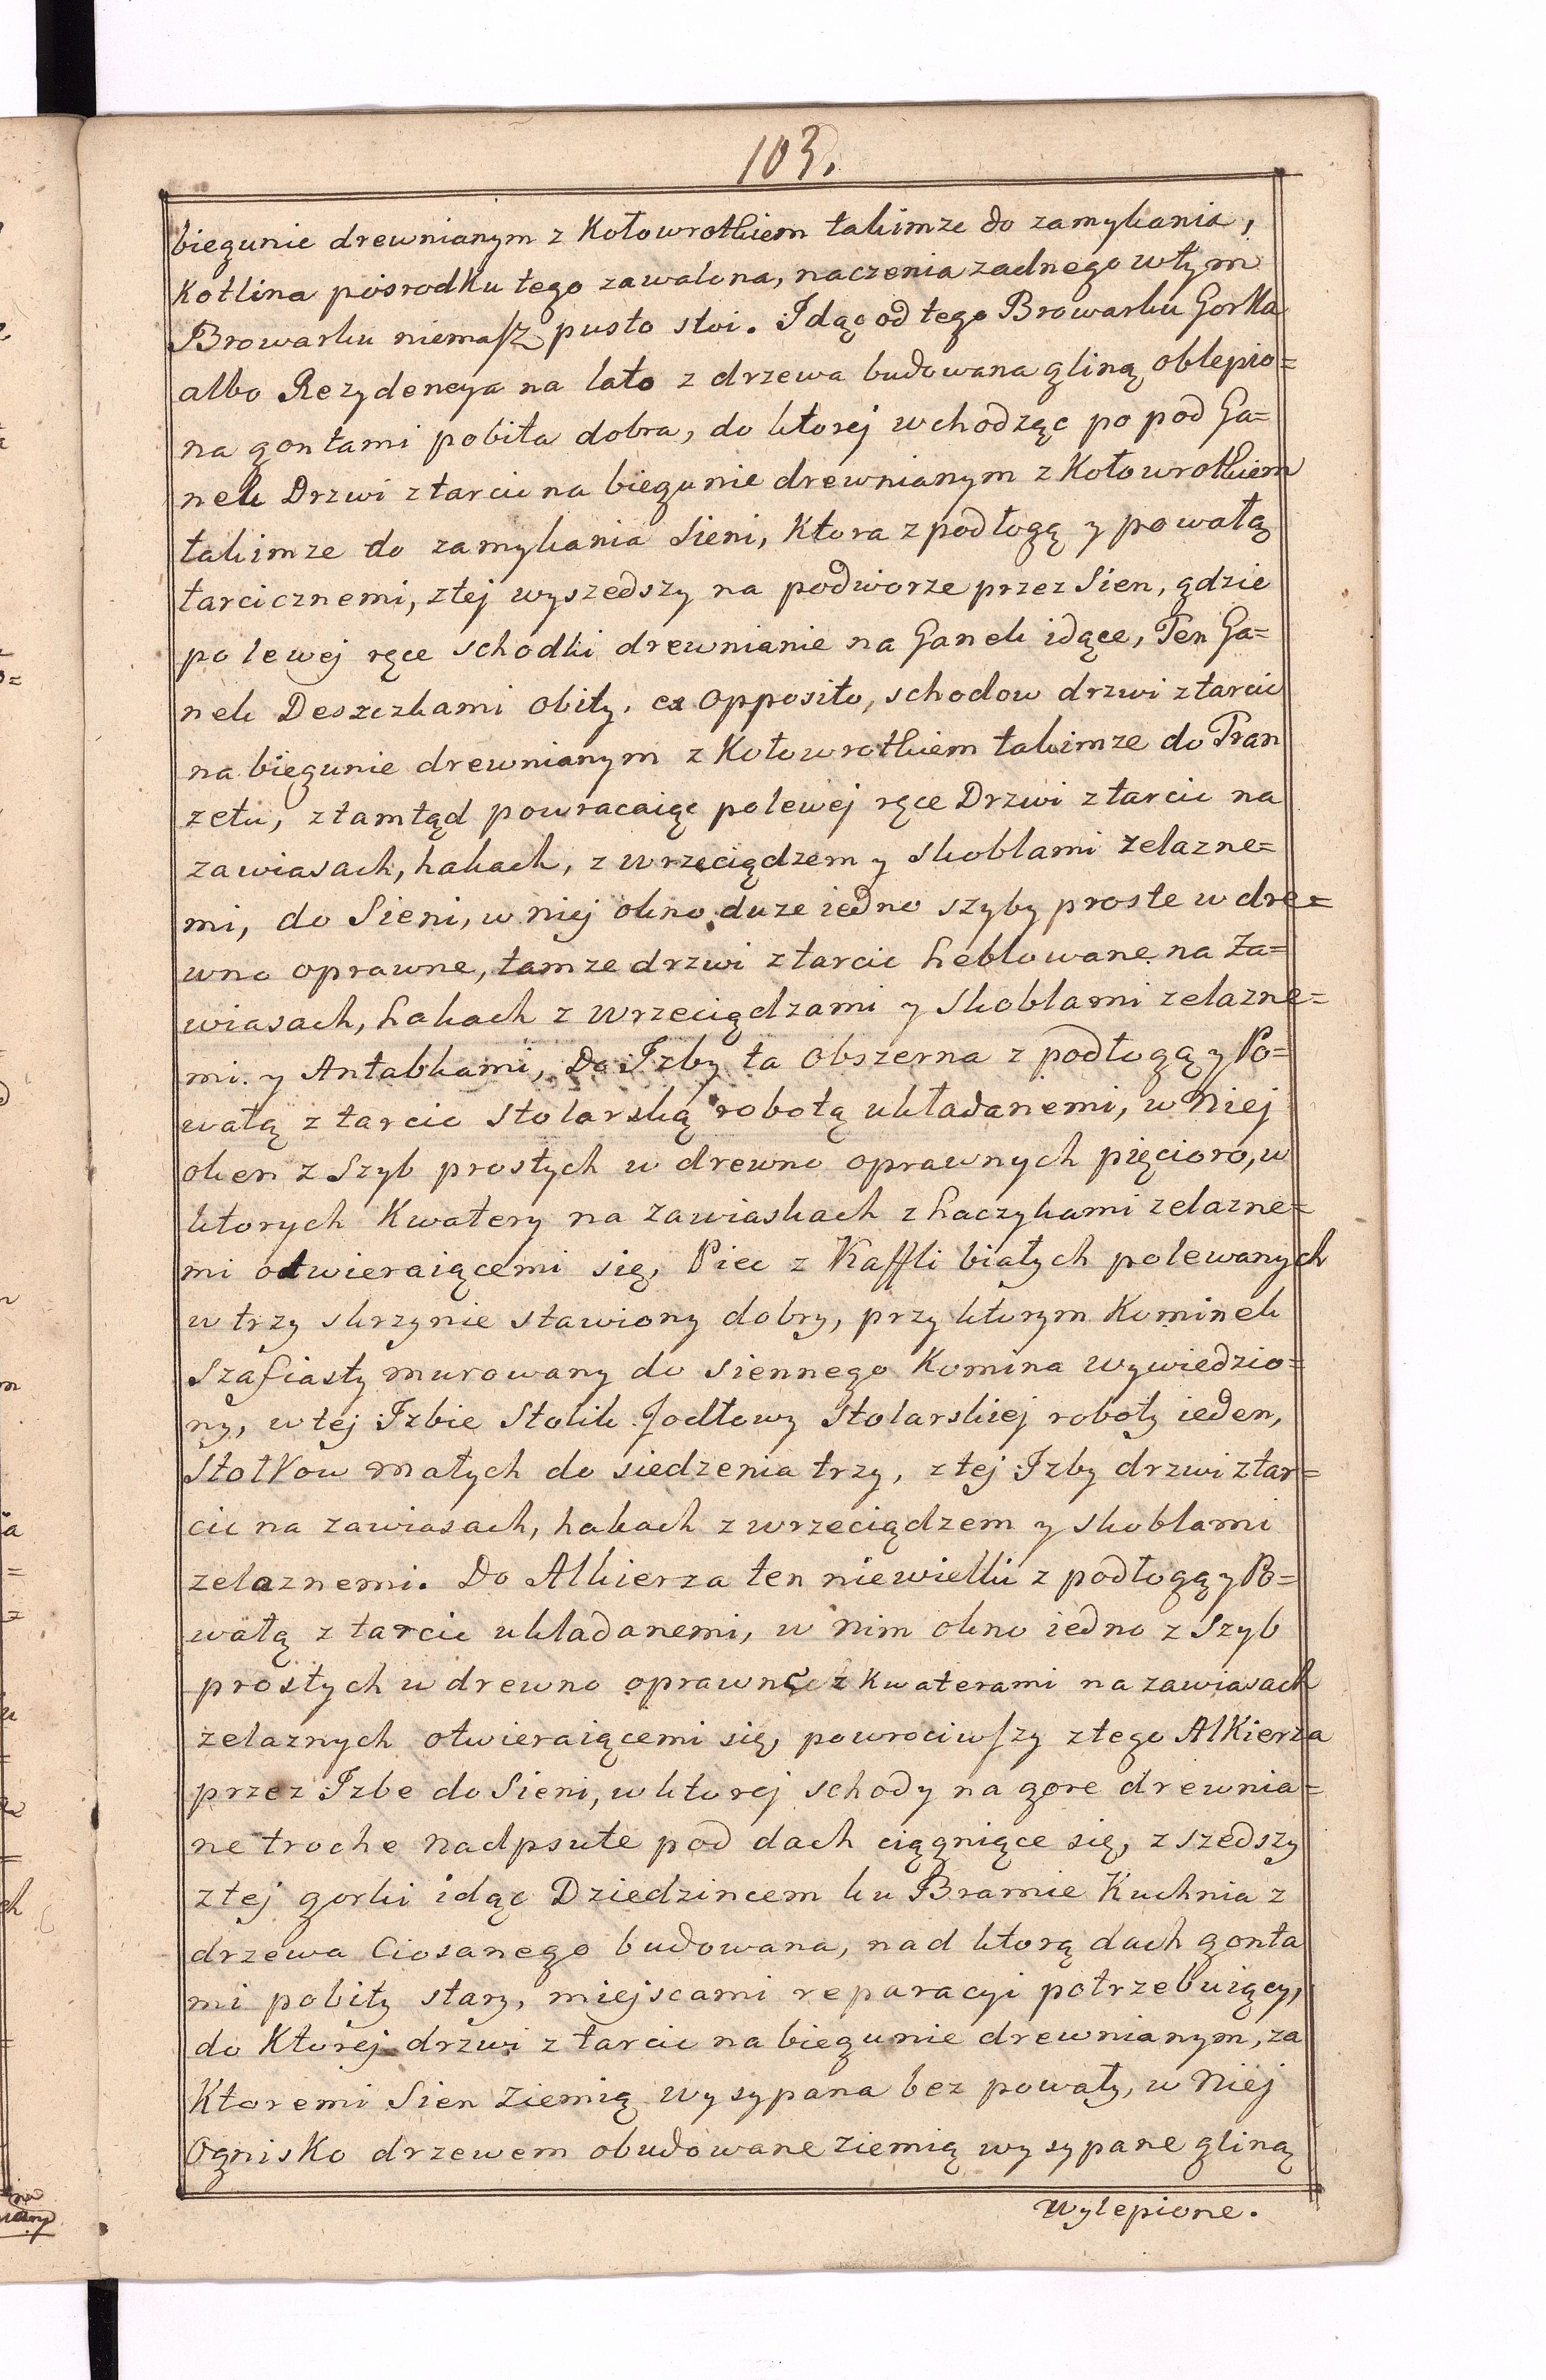 103.
biegunie drewnianym z Kołowrotkiem takimze do zamykania,
Kotlina posrodku tego zawalona, naczenia zadnego wtym
Browarku niemasz pusto stoi. Idąc od tego Browarku Gorka
albo Rezydencya na lato z drzewa budowana gliną oblepio=
na gontami pobita dobra, do ktorej wchodząc po pod Ga=
nek Drzwi ztarcic na biegunie drewnianym z Kołowrotkiem
takimze do zamykania Sieni, Ktora z podłogą y powałą
tarcicznemi, ztej wyszedszy na podworze przez Sien, gdzie
po lewej ręce schodki drewnianie na Ganek idące, Ten Ga=
nek Deszczkami obity, ex Opposito, schodow drzwi ztarcic
na biegunie drewnianym z Kołowrotkiem takimze do Tran
zetu, ztamtąd powracaiąc polewej ręce Drzwi ztarcic na
zawiasach, hakach, z wrzeciądzem y skoblami zelazne=
mi, do Sieni, w niej okno duze iedno szyby proste w dre=
wno oprawne, tamze drzwi ztarcic heblowane na Za=
wiasach, hakach z wrzeciądzami y Skoblami zelazne=
mi y Antabkami, Do Izby ta obszerna z podłogą y Po=
wałą z tarcic stolarską robotą układanemi, w Niej
oken z Szyb prostych w drewno oprawnych pięcioro, w
ktorych Kwatery na zawiaskach z haczykami zelazne=
mi otwieraiącemi się, Piec z Kaffli białych polewanych
w trzy skrzynie stawiony dobry, przy ktorym Kominek
Szafiasty murowany do siennego Komina wywiedzio=
ny, w tej Izbie Stolik Jodłowy Stolarskiej roboty ieden,
Stołkow małych do siedzenia trzy, z tej Izby drzwi ztar=
cic na zawiasach, hakach z wrzeciądzem y skoblami
zelaznemi. Do Alkierza ten niewielki z podłogą y Po=
wałą z tarcic układanemi, w nim okno iedno z Szyb
prostych w drewno oprawne z Kwaterami na zawiasach
zelaznych otwieraiącemi się, powrociwszy ztego AlKierza
przez Izbe do Sieni, w ktorej schody na gore drewnia=
ne troche nadpsute pod dach ciągniące się, z szedszy
ztej gorki idąc Dziedzincem ku Bramie Kuchnia z
drzewa Ciosanego budowana, nad ktorą dach gonta
mi pobity stary, miejscami reparacyi potrzebuiący,
do Ktorej drzwi z tarcic na biegunie drewnianym, za
Ktoremi Sien Ziemią wysypana bez powały, w Niej
OgnisKo drzewem obudowane ziemią wysypane gliną
wylepione.